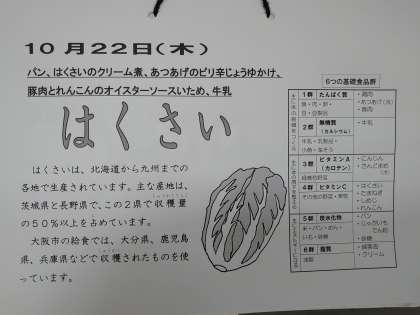 10月22日(木)
パン、はくさいのクリーム煮、あつあげのピリ辛じょうゆかけ、
豚肉とれんこんのオイスターソースいため、牛乳
はくさい
はくさいは、北海道から九州までの
各地で生産されています。主な産地は、
茨城県と長野県で、この2県で収穫量
の50%以上を占めています。
大阪市の給食では、大分県、鹿児島
県、兵庫県などで収穫されたものを使
っています。
6つの基礎食品群
1群 たんぱく質
魚・肉・卵・
豆・豆製品
・鶏肉
・あつあげ
・豚肉
2群 無機質
(カルシウム)
牛乳・乳製品・
小魚・海そう
・牛乳
3群 ビタミンA
(カロテン)
緑黄色野菜
・にんじん
4群 ビタミンC
その他の野菜・果物
・はくさい
・たまねぎ
・しめじ
・れんこん
5群 炭水化物
米・パン・めん・
いも・砂糖
・パン
・じゃがいも
でん粉
・砂糖
6群 脂質
油脂
・綿実油
・クリーム